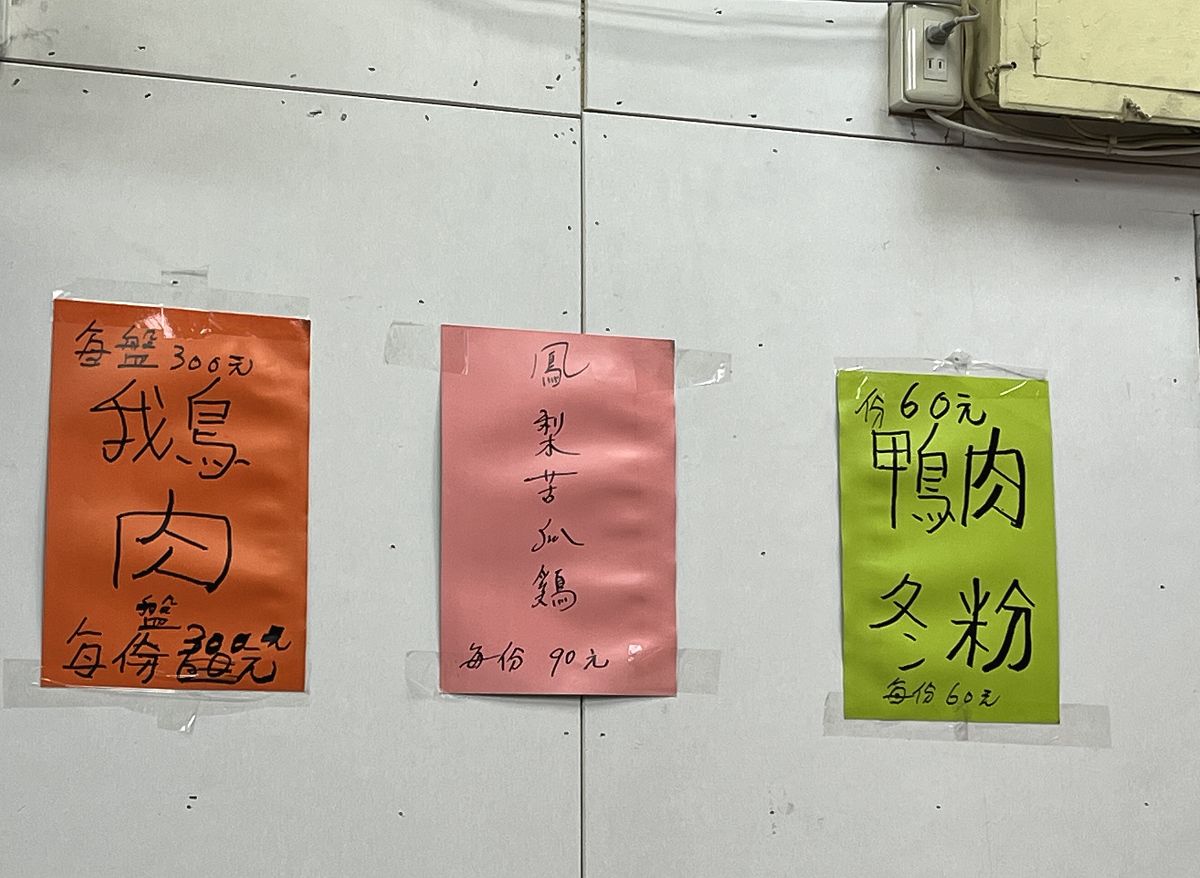 每盤300元
鵝
肉
盤
每份300元
鳳
梨
苦
瓜
鷄
每份 90元
份60元
鴨肉
冬粉
每份60元